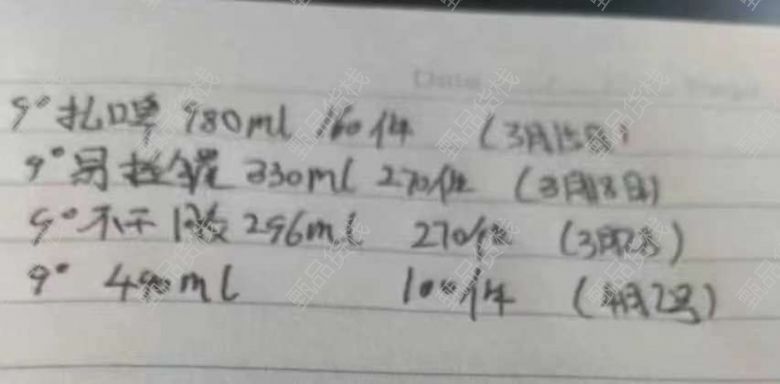 Date
9°扎啤 980ml 160件 (3月15号)
9°易拉罐 330ml 270件 (3月18日)
9°不干 296ml 270件 (3月 号)
9° 490ml 100件 (4月2号)